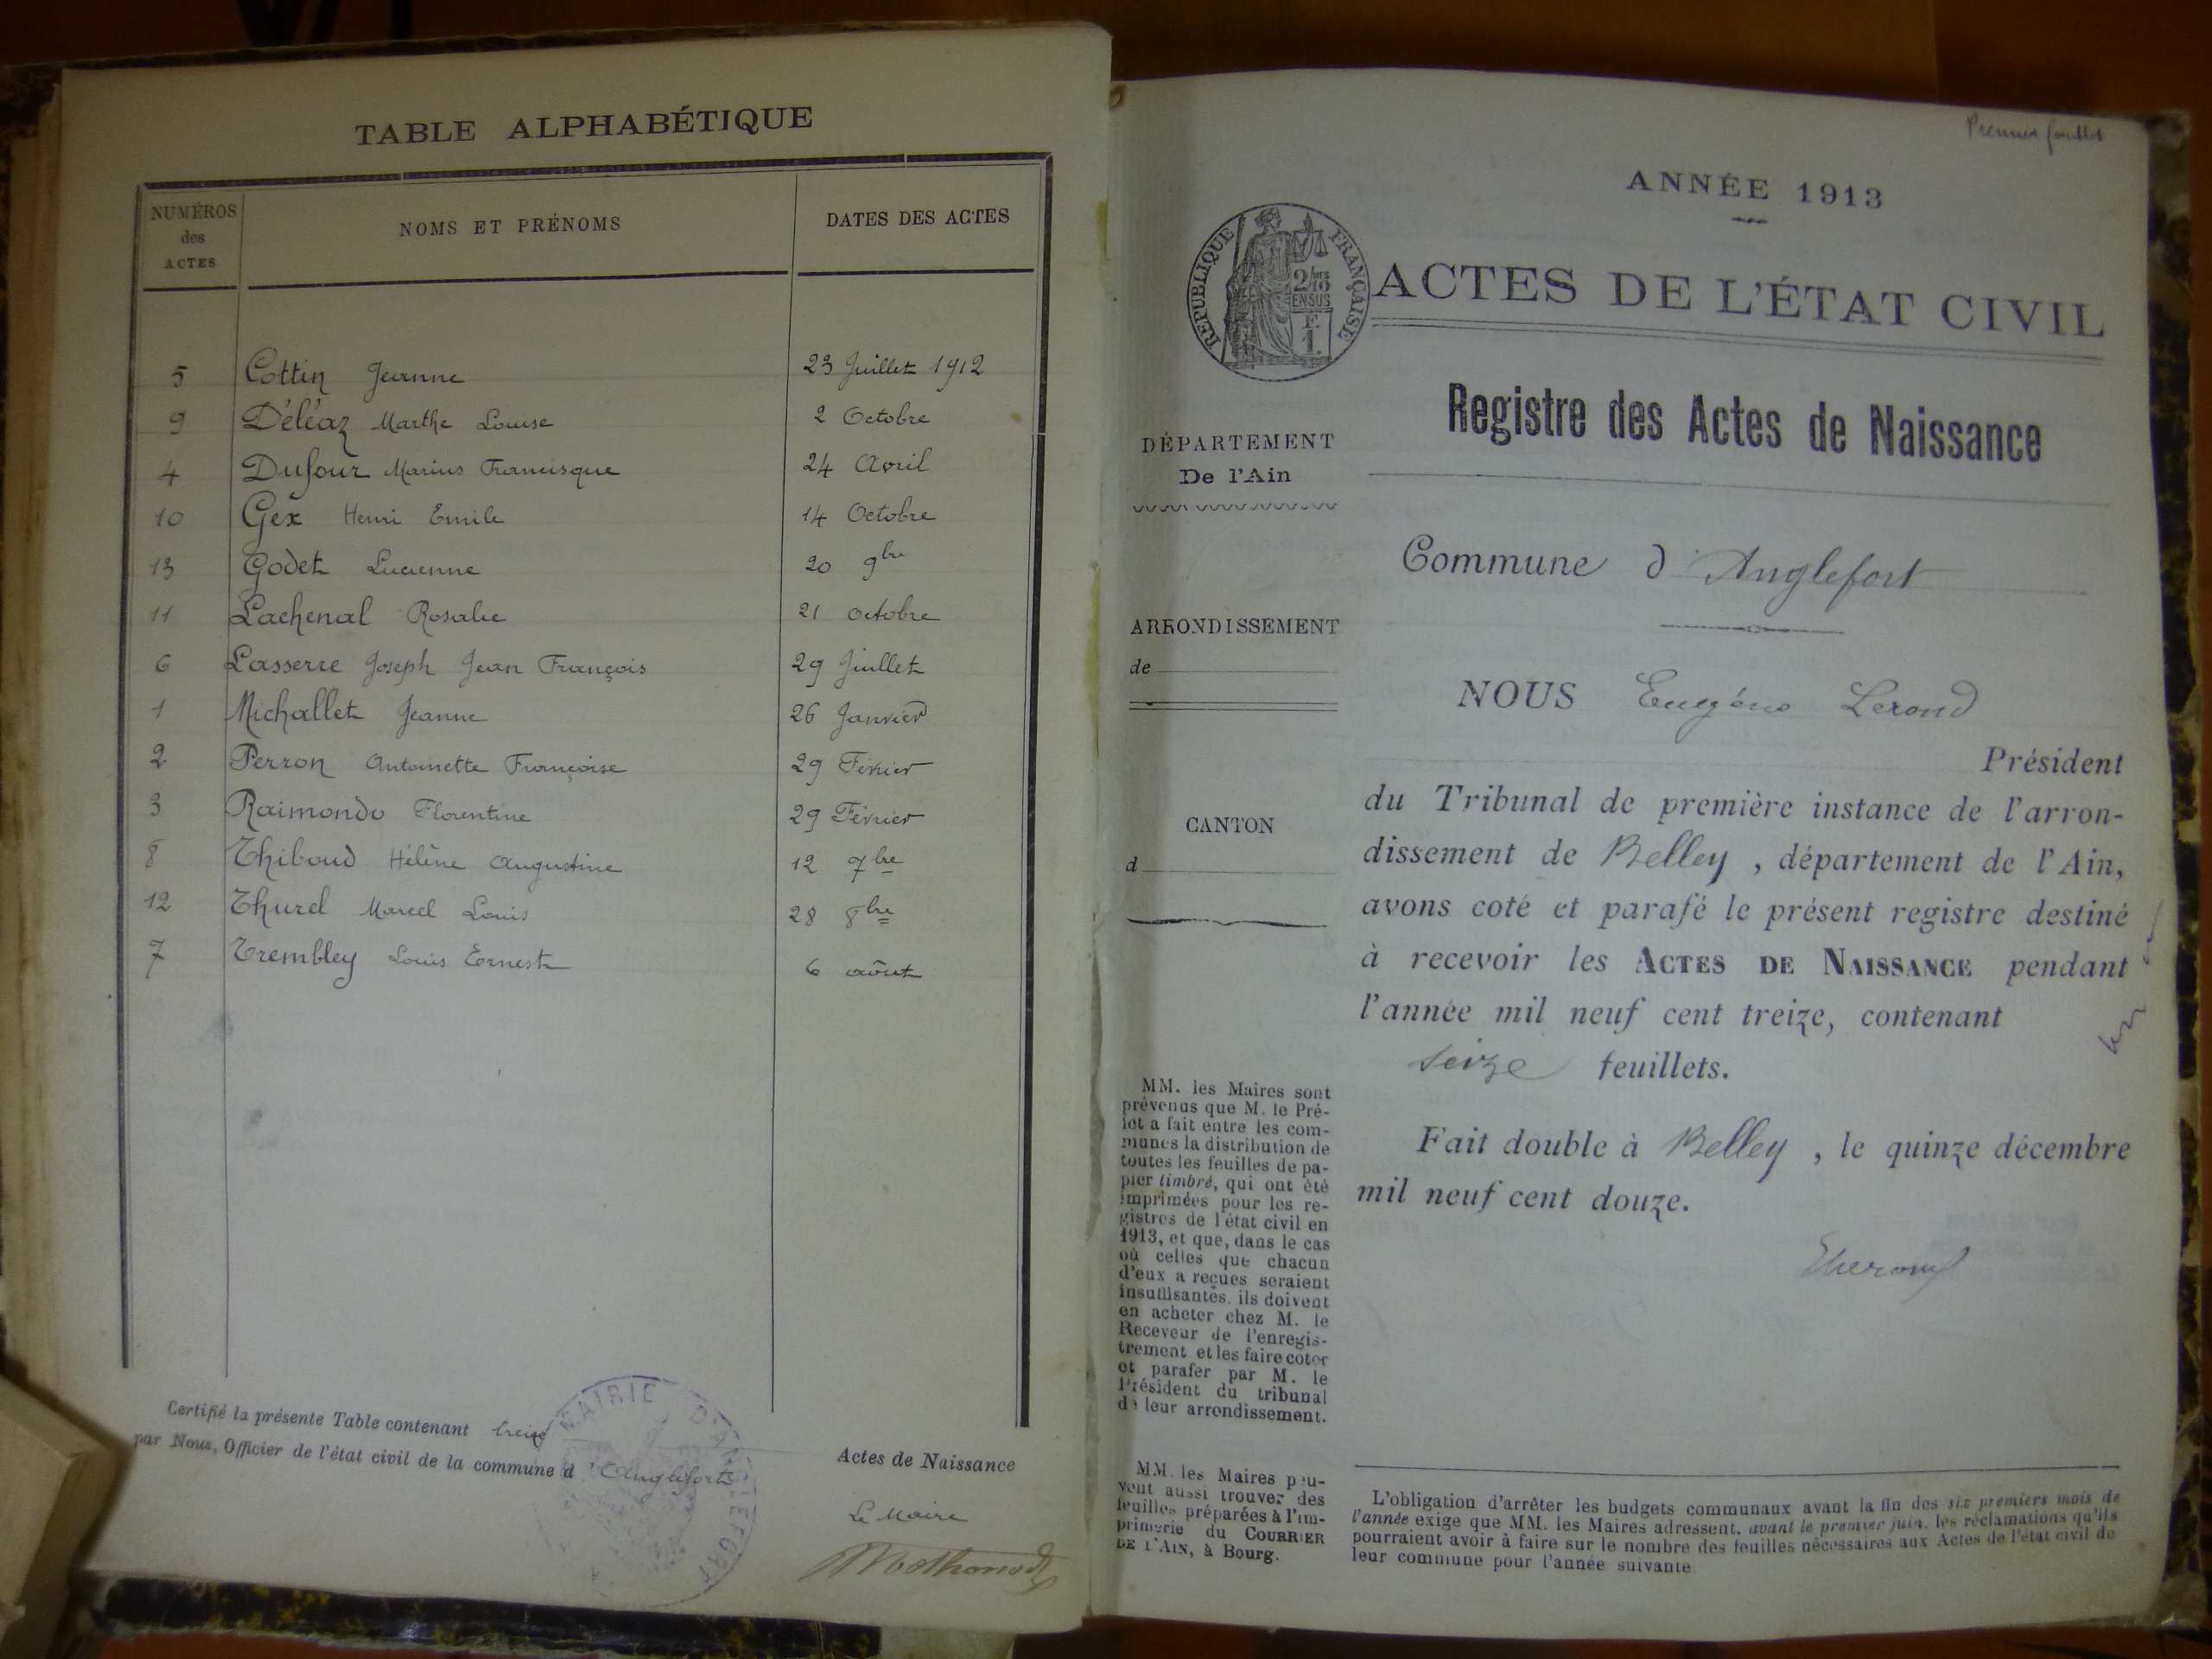 TABLE ALPHABÉTIQUE
NUMÉROS des ACTES NOMS ET PRÉNOMS DATES DES ACTES
5 Cottin Jeanne 23 Juillet 1912
9 Déléaz Marthe Louise 2 Octobre
4 Dufour Marius Francisque 24 Avril
10 Gex Henri Emile 14 Octobre
13 Godet Lucienne 20 9bre
11 Lachenal Rosalie 21 octobre
6 Lasserre Joseph Jean François 29 Juillet
1 Michallet Jeanne 26 Janvier
2 Perron Antoinette Françoise 29 Février
3 Raimondo Florentine 29 Février
8 Thiboud Hélène Augustine 12 7bre
12 Thurel Marcel Louis 28 8bre
7 Trembley Louis Ernest 6 août
Certifié la présente Table contenant treize
Actes de Naissance
par Nous, Officier de l'état civil de la commune d'Anglefort
MAIRIE D'ANGLEFORT
Le Maire
Premier feuillet
ANNÉE 1913
RÉPUBLIQUE FRANÇAISE
2/10 EN SUS
F.
1.
ACTES DE L'ÉTAT CIVIL
Registre des Actes de Naissance
DÉPARTEMENT
De l'Ain
Commune d'Anglefort
ARRONDISSEMENT
de
NOUS Eugène Lerond
Président
du Tribunal de première instance de l'arron-
dissement de Belley, département de l'Ain,
avons coté et parafé le présent registre destiné
à recevoir les ACTES DE NAISSANCE pendant
l'année mil neuf cent treize, contenant
seize feuillets.
CANTON
d
Fait double à Belley, le quinze décembre
mil neuf cent douze.
MM. les Maires sont
prévenus que M. le Pré-
fet a fait entre les com-
munes la distribution de
toutes les feuilles de pa-
pier timbré, qui ont été
imprimées pour les re-
gistres de l'état civil en
1913, et que, dans le cas
où celles que chacun
d'eux a reçues seraient
insuffisantes, ils doivent
en acheter chez M. le
Receveur de l'enregis-
trement et les faire coter
et parafer par M. le
Président du tribunal
de leur arrondissement.
MM. les Maires peu-
vent aussi trouver des
feuilles préparées à l'im-
primerie du COURRIER
DE L'AIN, à Bourg.
L'obligation d'arrêter les budgets communaux avant la fin des six premiers mois de
l'année exige que MM. les Maires adressent, avant le premier juin, les réclamations qu'ils
pourraient avoir à faire sur le nombre des feuilles nécessaires aux Actes de l'état civil de
leur commune pour l'année suivante